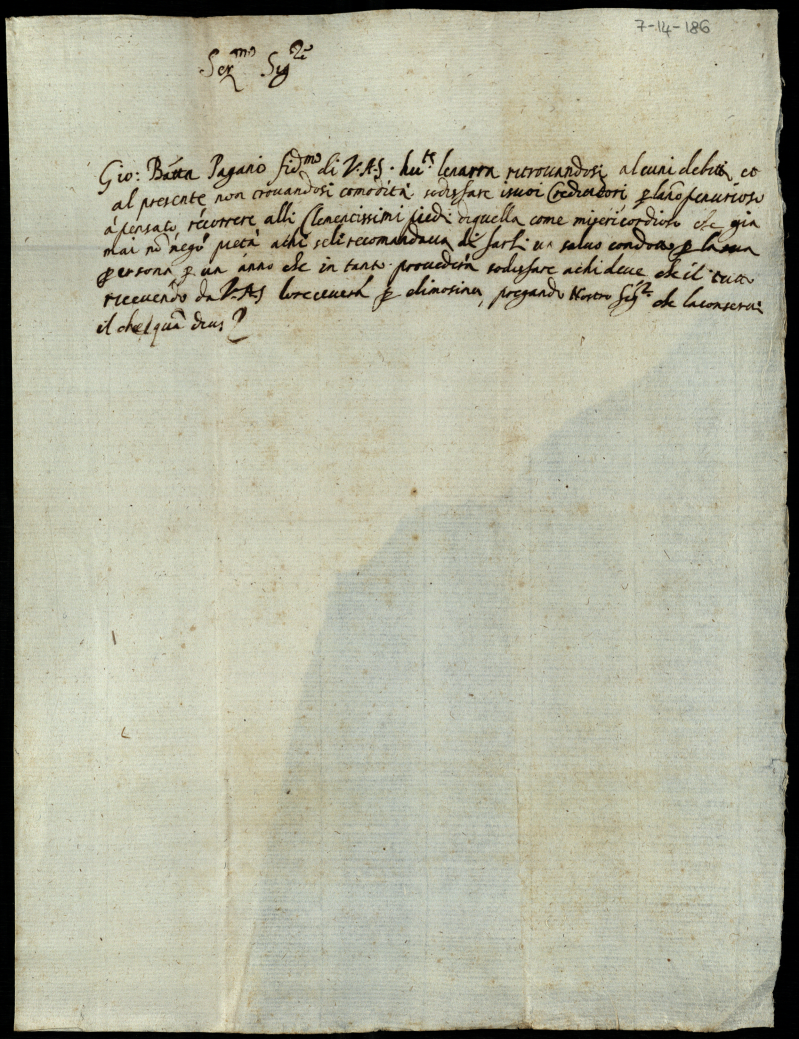 7-14-186
Ser.mo Sig.re
Gio: Batta Pagano fid.mo di V.A.S. hu.te le narra ritrouandosi alcuni debiti, et
al presente non trouandosi comodità sodisfare i suoi Creditori p l'anno penurioso
à pensato, recorrere alli Clementissimi piedi di quella come misericordioso che gia
mai nō negò pietà a chi se li recomandaua di farli un saluo condotto p la sua
persona p un anno che in tanto prouederà sodisfare a chi deue che il tutto
riceuendo da V.A.S. lo receuerà p elimosina, pregando Nostro Sig.re che la conserui
il che quā deus